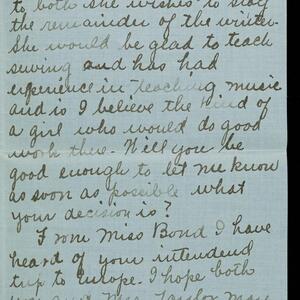 to both she wishes to stay
the remainder of the winter.
She would be glad to teach
sewing and has had
experience in teaching music
and is I believe the kind of
a girl who would do good
work there. Will you be
good enough to let me know
as soon as possible what
your decision is?
From Miss Bond I have
heard of your intendend
trip to Europe. I hope both
you and Mrs. Taylor may